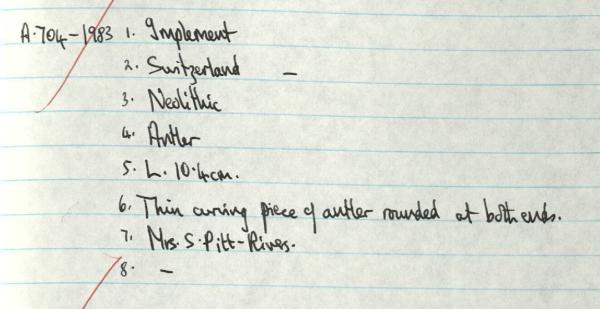 A.704-1983 1. Implement
2. Switzerland -
3. Neolithic
4. Antler
5. L. 10.4cm.
6. Thin curving piece of antler rounded at both ends.
7. Mrs. S. Pitt-Rivers.
8. -